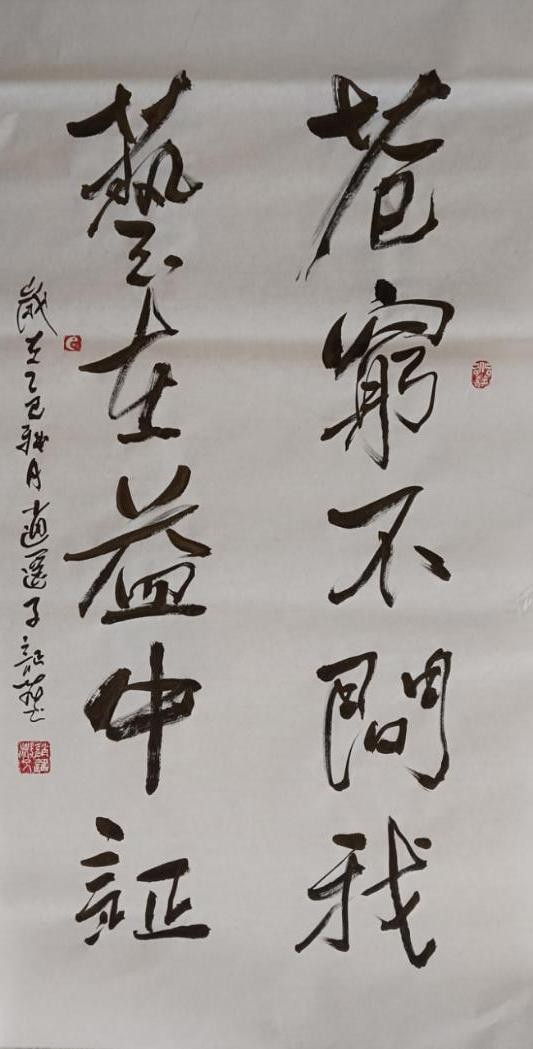 苍窮不問我
藝在益中証
歲在乙巳秋月逍遥子